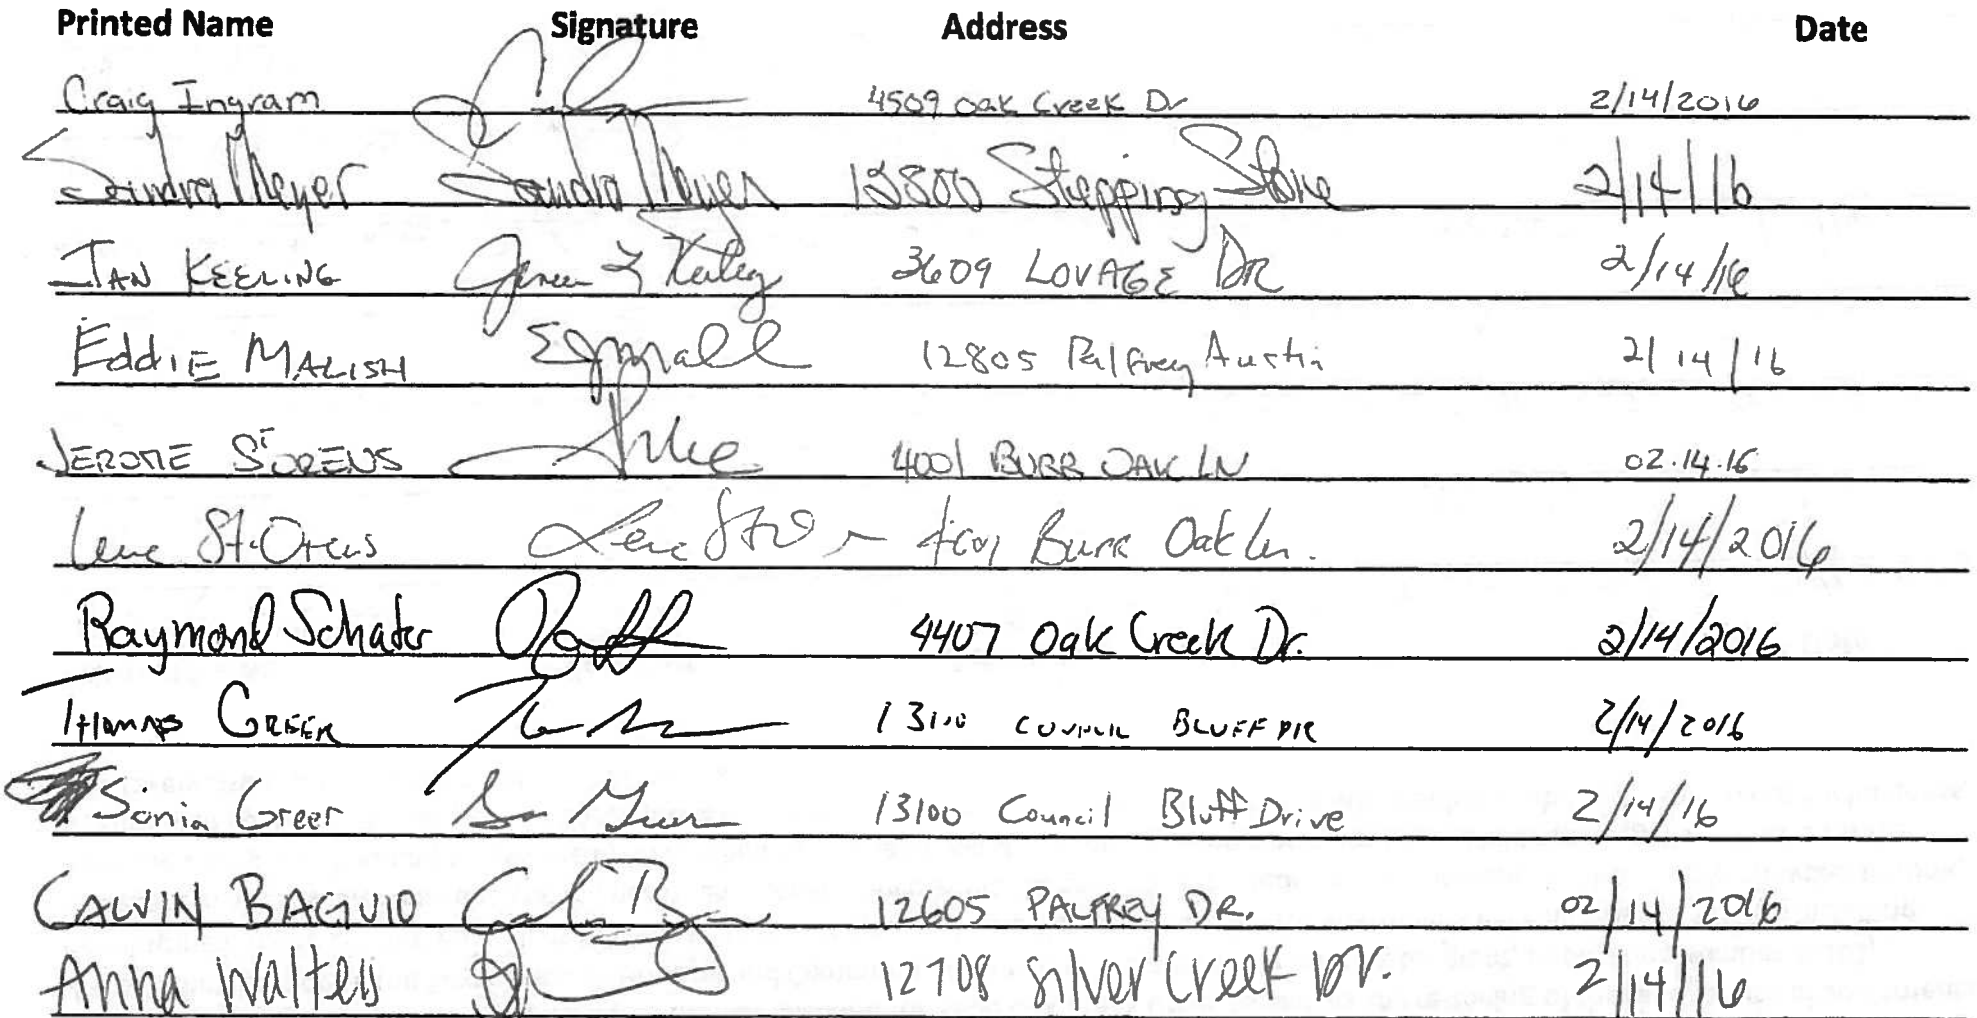 Printed Name Signature Address Date
Craig Ingram 4509 Oak Creek Dr 2/14/2016
Sandra Meyer Sandra Meyer 12800 Stepping Stone 2/14/16
JAN KEELING 3609 LOVAGE DR 2/14/16
EddIE MALISH 12805 Palfrey Austin 2/14/16
JEROME 4001 BURR OAK LN 02.14.16
Burr Oak Ln. 2/14/2016
Raymond Schafer 4407 Oak Creek Dr. 2/14/2016
THOMAS GREER 13100 COUNCIL BLUFF DR 2/14/2016
Sonia Greer 13100 Council Bluff Drive 2/14/16
CALVIN BAGUIO 12605 PALFREY DR. 02/14/2016
Anna Walters 12708 Silver Creek Dr. 2/14/16